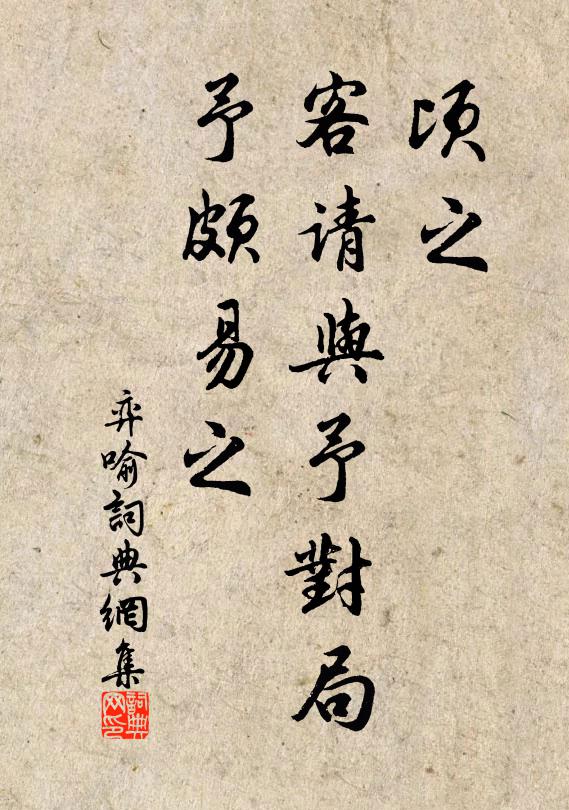 頃之
客請與予對局
予頗易之
弈喻詞典網集
詞典
网印